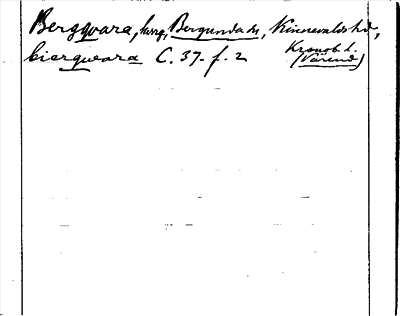 Bergqvara, herrg, Bergunda sn, Kinnevalds hd,
Kronob. l.
biergwara C. 37. f. 2 (Värend)